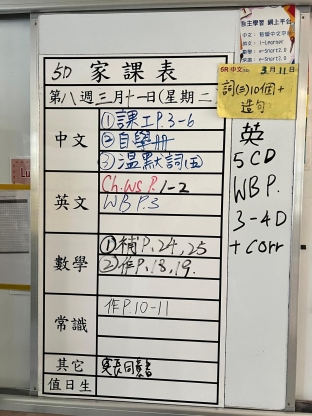 5D 家課表
第八週三月十一日(星期二
中文
①課工P.3-6
②自學冊
③溫默詞(五)
英文
Ch.WS P.1-2
WB P.3
數學
①補P.24,25
②作P.18,19.
常識
作P.10-11
其它
值日生
自主學習 網上平台
5R 中文 3月11日
詞(三)10個+
造句
英
5CD
WB P.
3-4D
+ corr